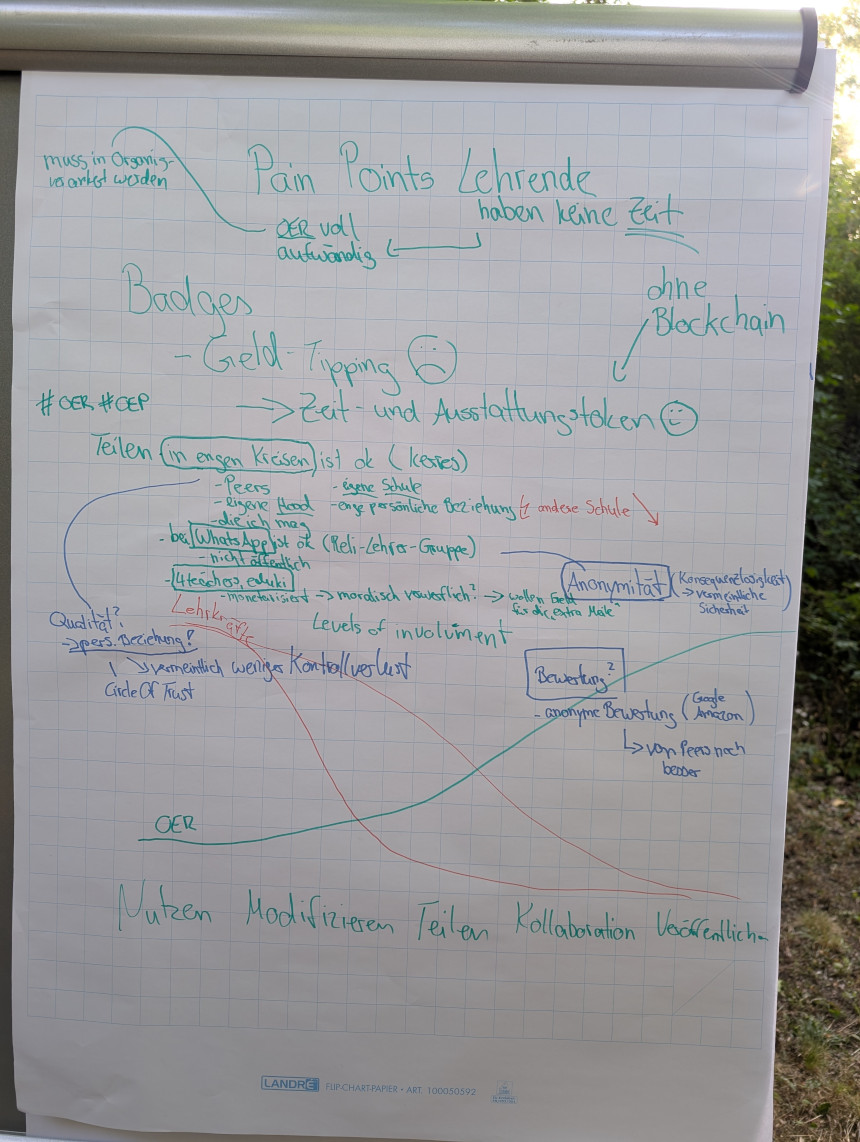 Pain Points Lehrende
haben keine Zeit
muss in Organis-
verankert werden
OER voll
aufwändig
ohne
Blockchain
Badges
- Geld-Tipping
#OER #OEP
Zeit- und Ausstattungstoken
Teilen in engen Kreisen ist ok (Kerres)
- Peers
- eigene Schule
- eigene Hood
- enge persönliche Beziehung
andere Schule
- die ich mag
- bei WhatsApp ist ok (Reli-Lehrer-Gruppe)
- nicht öffentlich
- 4teachers, eduki
- monetarisiert → moralisch verwerflich? → wollen Geld
für die "extra Meile"
Anonymität
(Konsequenzlosigkeit
→ vermeintliche
Sicherheit)
Qualität?
→ pers. Beziehung!
Circle Of Trust
vermeintlich weniger Kontrollverlust
Lehrkräfte
Levels of involvment
Bewertung?
- anonyme Bewertung (Google
Amazon)
von Peers noch
besser
OER
Nutzen Modifizieren Teilen Kollaboration Veröffentlich-
LANDRÉ FLIP-CHART-PAPIER • ART. 100050592